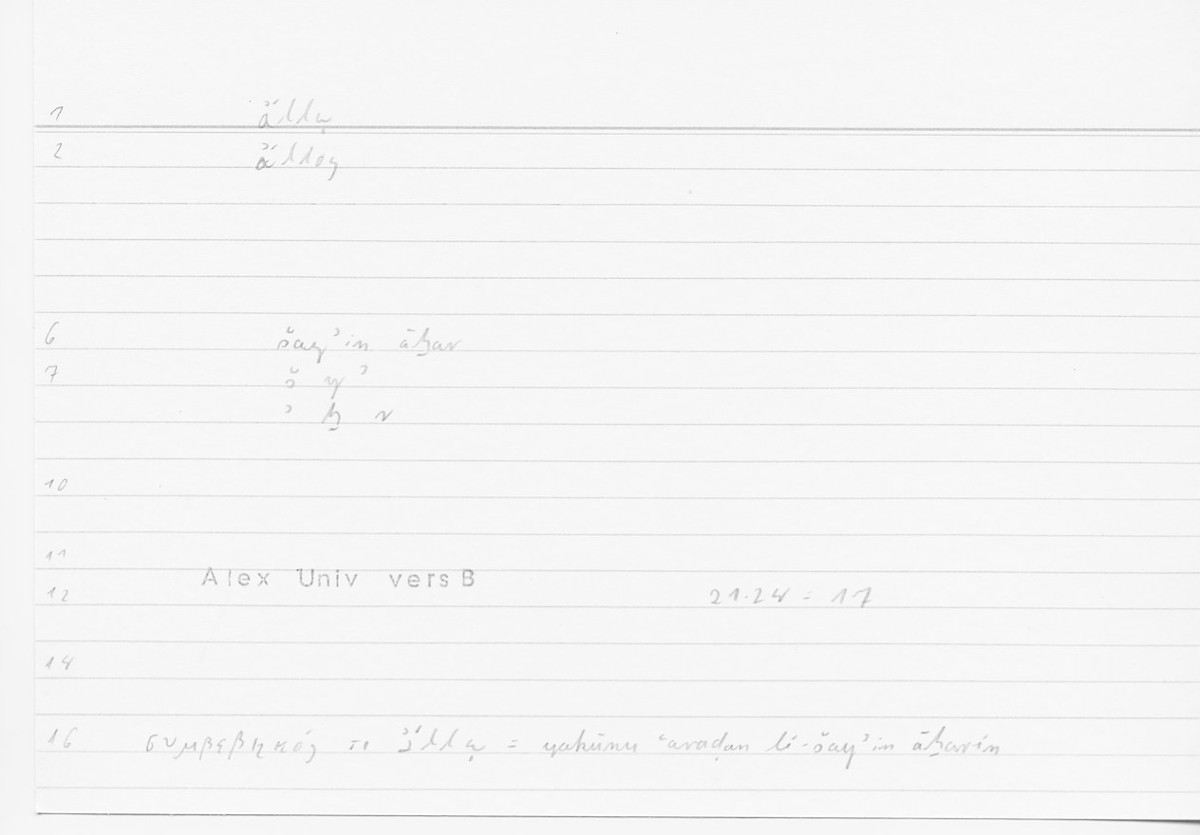 1 ἄλλῳ
2 ἄλλος
6 šayʾin āḫar
7 š y ʾ
ʾ ḫ r
10
11
Alex Univ vers B
12 21.24 = 17
14
16 συμβεβηκός τι ἄλλῳ = yakūnu ʿaraḍan li-šayʾin āḫarin